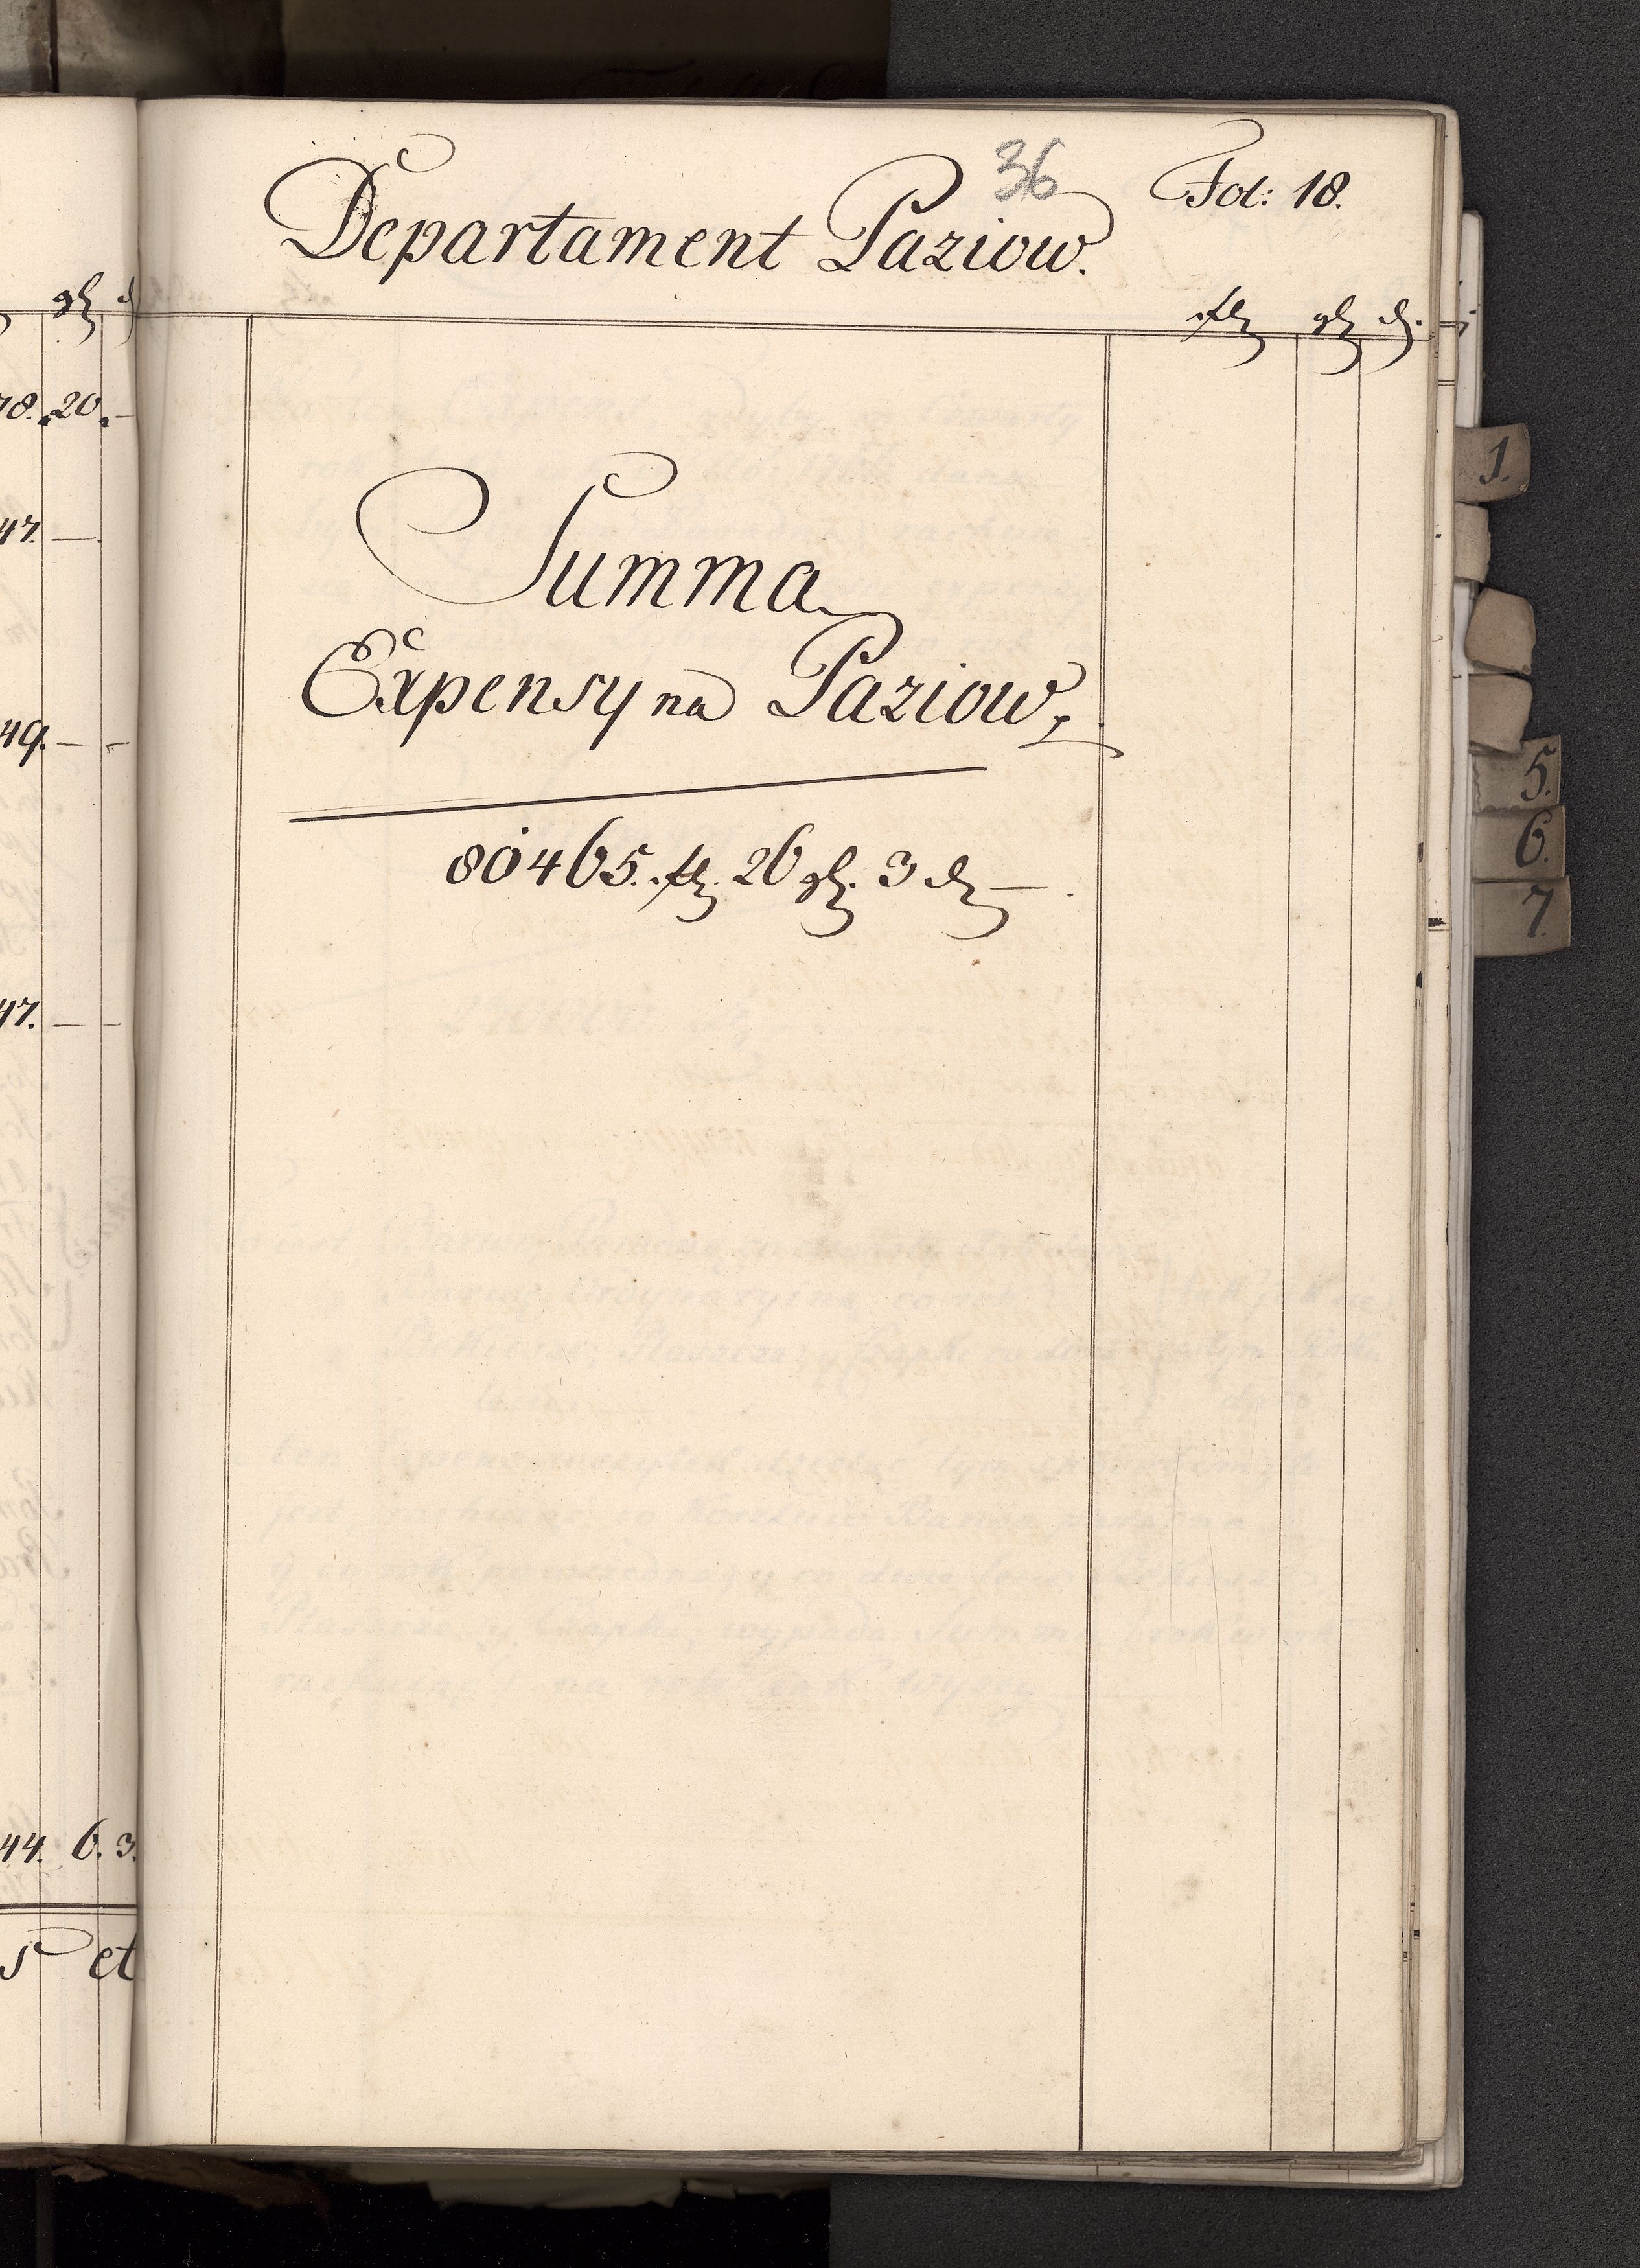 36
Fol: 18.
Departament Paziow.
fl gl d.
gl d
78. 20. —
47. —
49. — —
47. — —
44. 6. 3.
s et
Summa
Expensy na Paziow,
80465. fl. 26 gl. 3 d —.
1.
5.
6.
7.